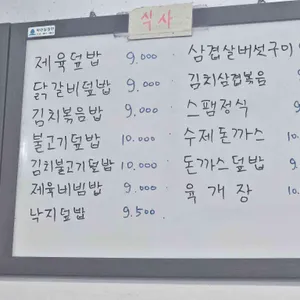 식사
제육덮밥 9.000
닭갈비덮밥 9.000
김치볶음밥 9.000
불고기덮밥 10.000
김치불고기덮밥 10.000
제육비빔밥 9.000
낙지덮밥 9.500
삼겹살버섯구이
김치삼겹볶음
스팸정식
수제돈까스
돈까스덮밥
육개장